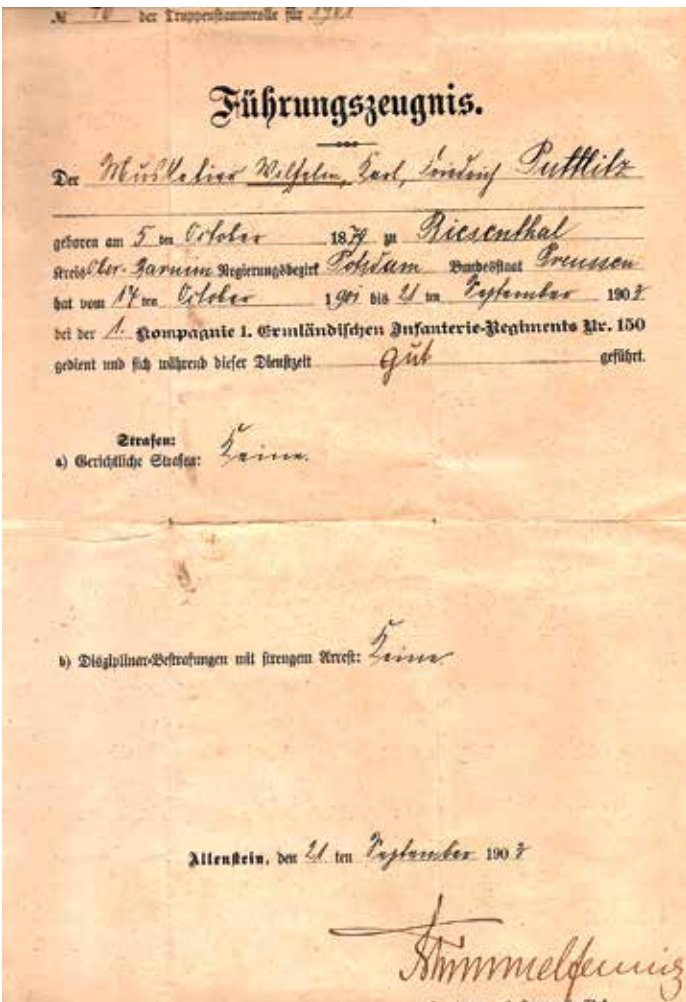 № 70 der Truppenstammrolle für 1901
Führungszeugnis.
Der Musketier Wilhelm, Karl, Friedrich Puttlitz
geboren am 5 ten October 1879 zu Biesenthal
Kreis Ober-Barnim Regierungsbezirk Potsdam Bundesstaat Preussen
hat vom 17 ten October 1901 bis 21 ten September 1903
bei der 1. Kompagnie 1. Ermländischen Infanterie-Regiments Nr. 150
gedient und sich während dieser Dienstzeit gut geführt.
Strafen:
a) Gerichtliche Strafen: Keine.
b) Disziplinar-Bestrafungen mit strengem Arrest: Keine
Allenstein, den 21 ten September 1903